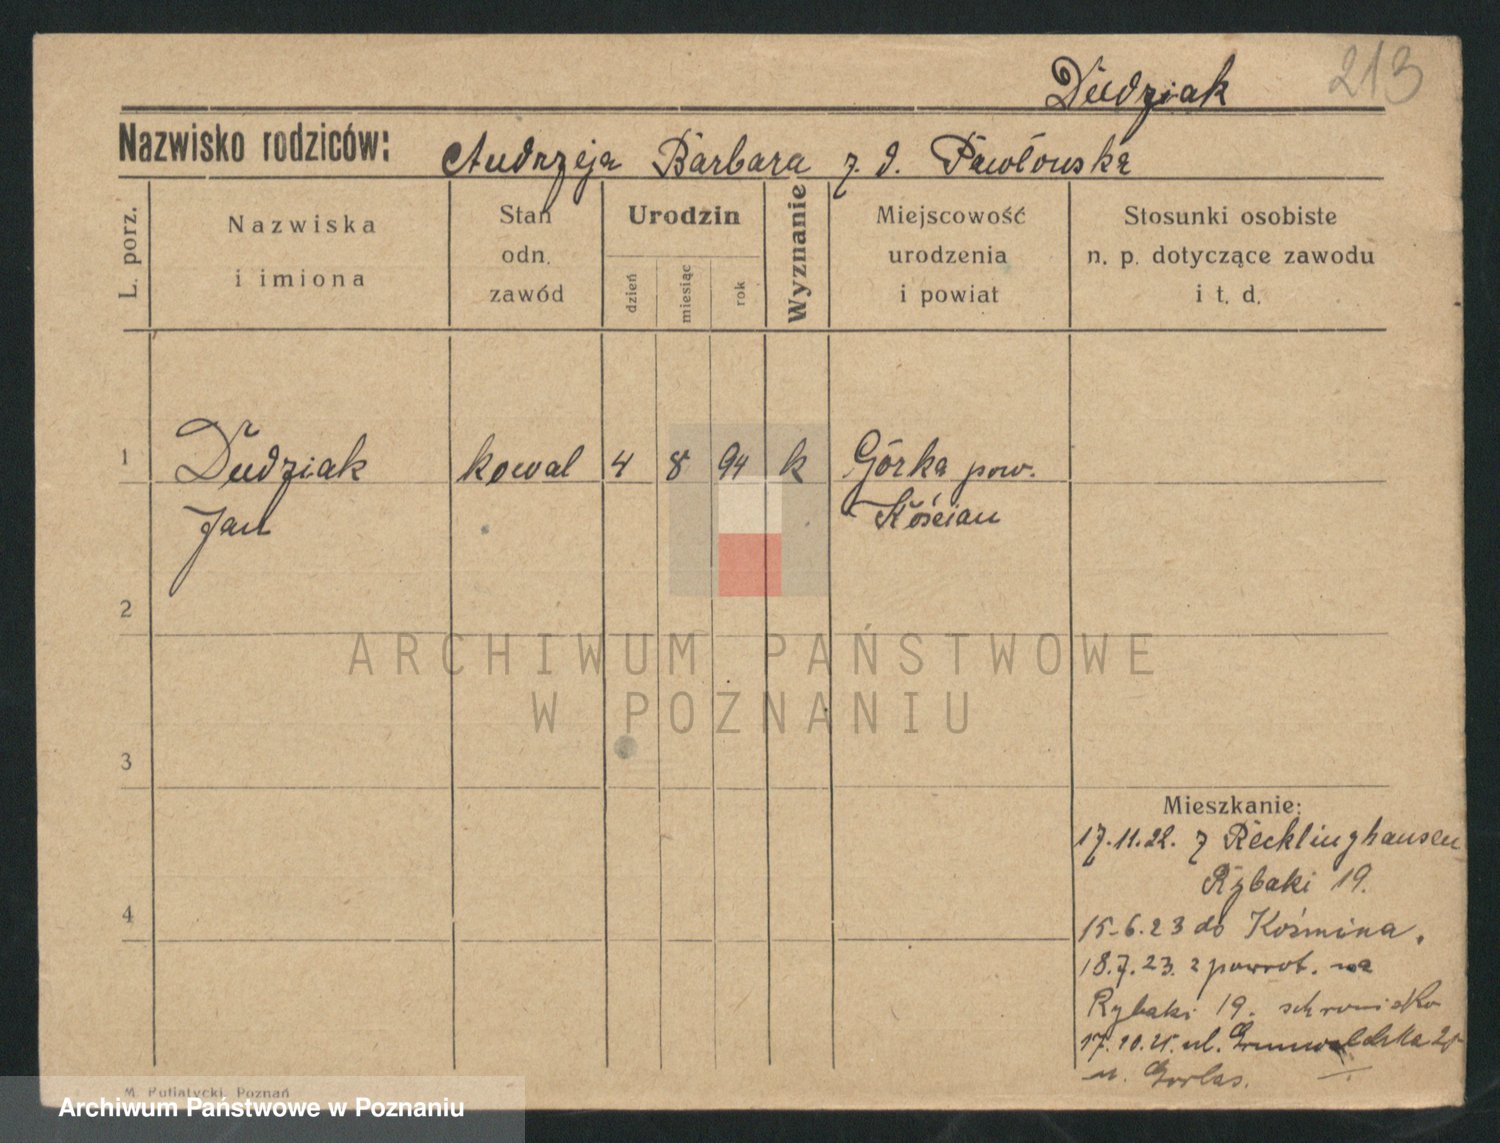 Dudziak 213
Nazwisko rodziców: Andrzeja Barbara z d. Pawłowska
L. porz.
Nazwiska
i imiona
Stan
odn.
zawód
Urodzin
dzień
miesiąc
rok
Wyznanie
Miejscowość
urodzenia
i powiat
Stosunki osobiste
n. p. dotyczące zawodu
i t. d.
1 Dudziak kowal 4 8 94 k Górka pow.
Jan Kościan
2
ARCHIWUM PAŃSTWOWE
W POZNANIU
3
Mieszkanie:
17.11.22. z Recklinghausen
Rybaki 19.
4
15-6.23 do Koźmina.
18.7.23. z powrot. na
Rybaki 19. schronisko
17.10.25. ul. Grunwaldzka
u.
M. Putiatycki, Poznań
Archiwum Państwowe w Poznaniu